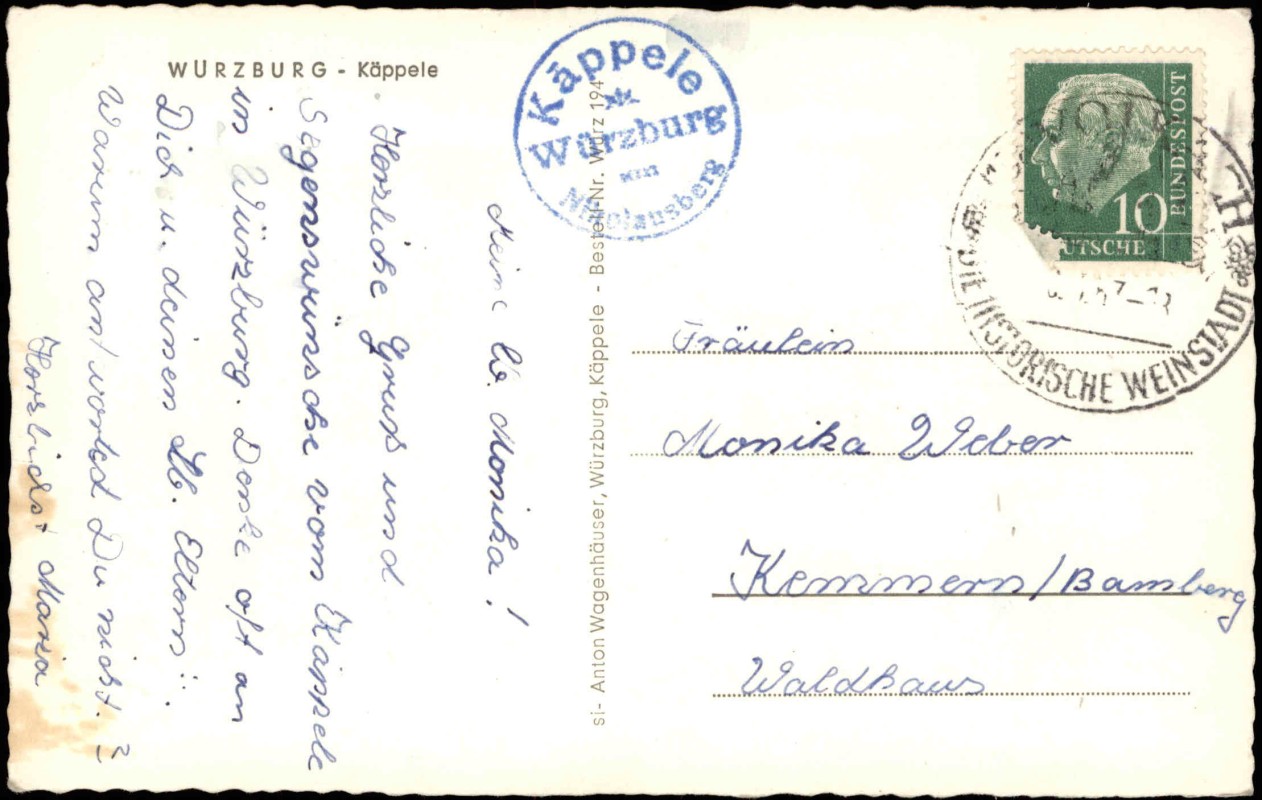 WÜRZBURG - Käppele
Käppele
Würzburg
Nikolausberg
Meine lb. Monika!
Herzliche Gruß und
Segenswünsche vom Käppele
in Würzburg. Denke oft an
Dich u. deinen lb. Eltern.
Warum antwortest Du nicht.?
Herzlichst Maria
si- Anton Wagenhäuser, Würzburg, Käppele - Bestell-Nr. Würz 194
10
BUNDESPOST
UTSCHE
DIE HISTORISCHE WEINSTADT
Fräulein
Monika Weber
Kemmern/Bamberg
Waldhaus